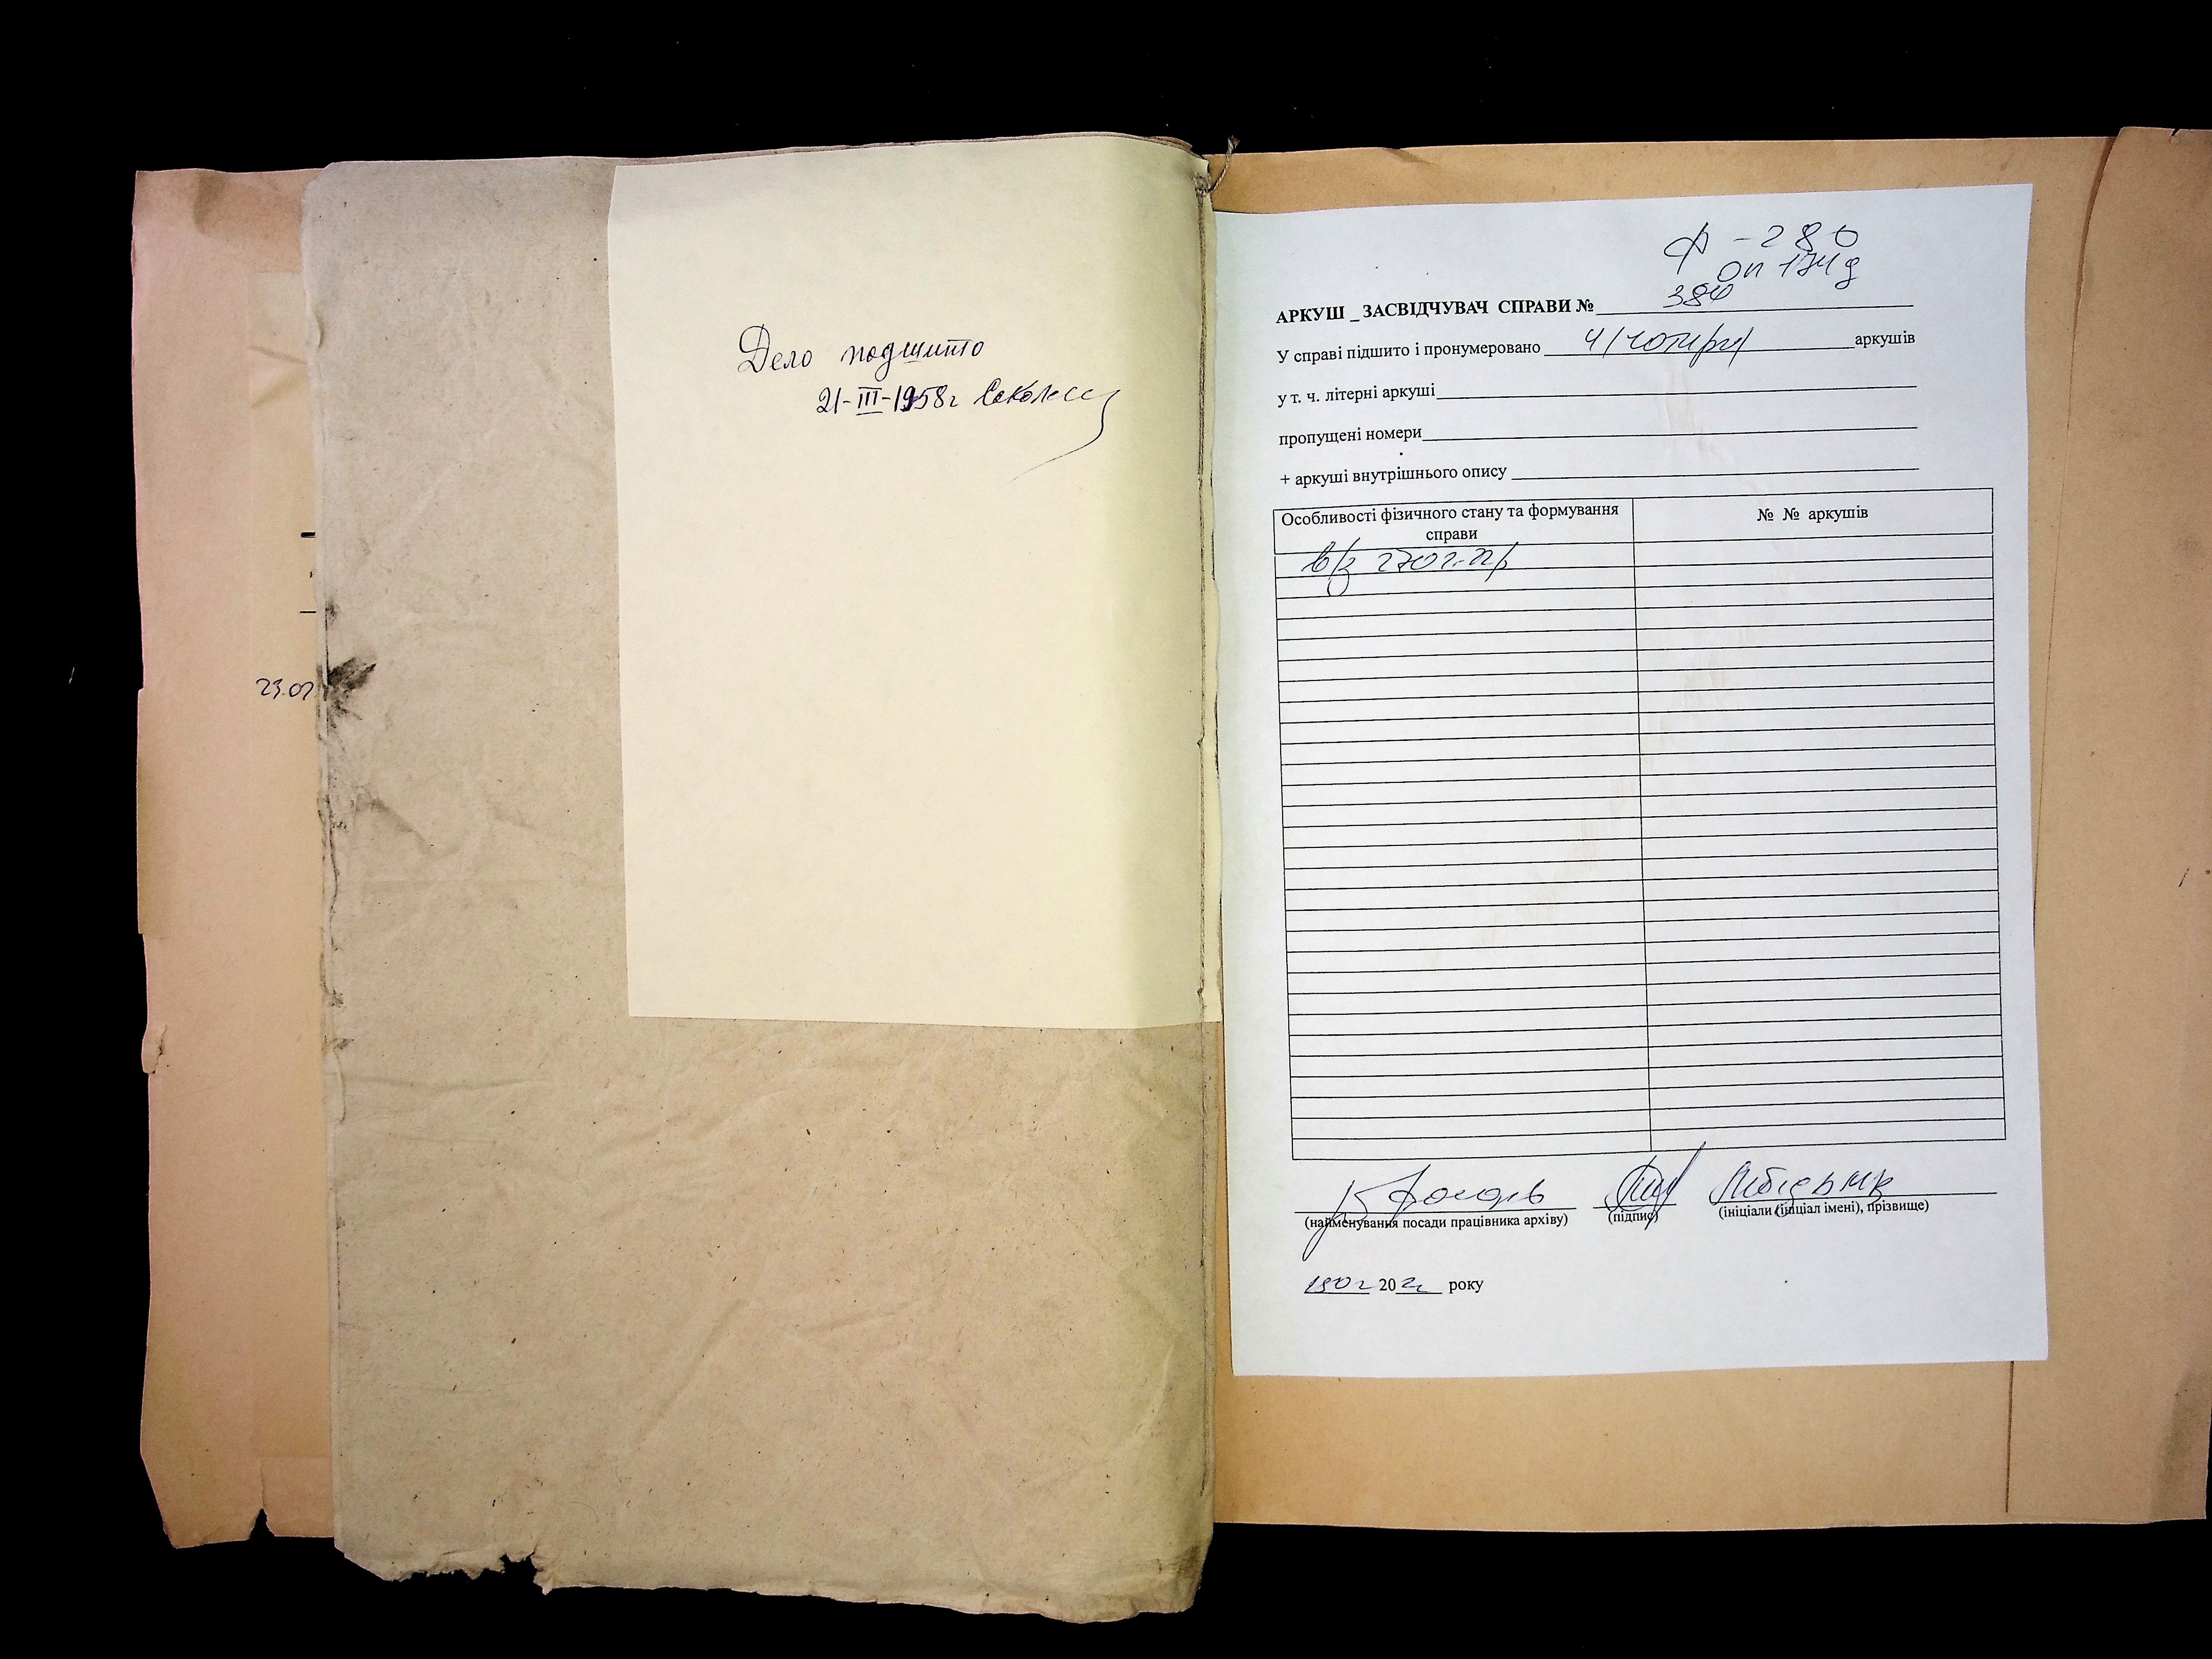 Дело подшито
21-III-1958г
23.02
Ф-280
оп 174 д
АРКУШ _ ЗАСВІДЧУВАЧ СПРАВИ № 384
У справі підшито і пронумеровано 4/чотири/ аркушів
у т. ч. літерні аркуші
пропущені номери
+ аркуші внутрішнього опису
Особливості фізичного стану та формування справи
№ № аркушів
(найменування посади працівника архіву)
(підпис)
(ініціали (ініціал імені), прізвище)
20 року